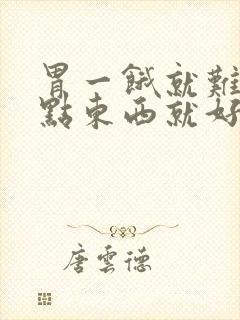 胃一餓就難
點東西就好
唐雲德